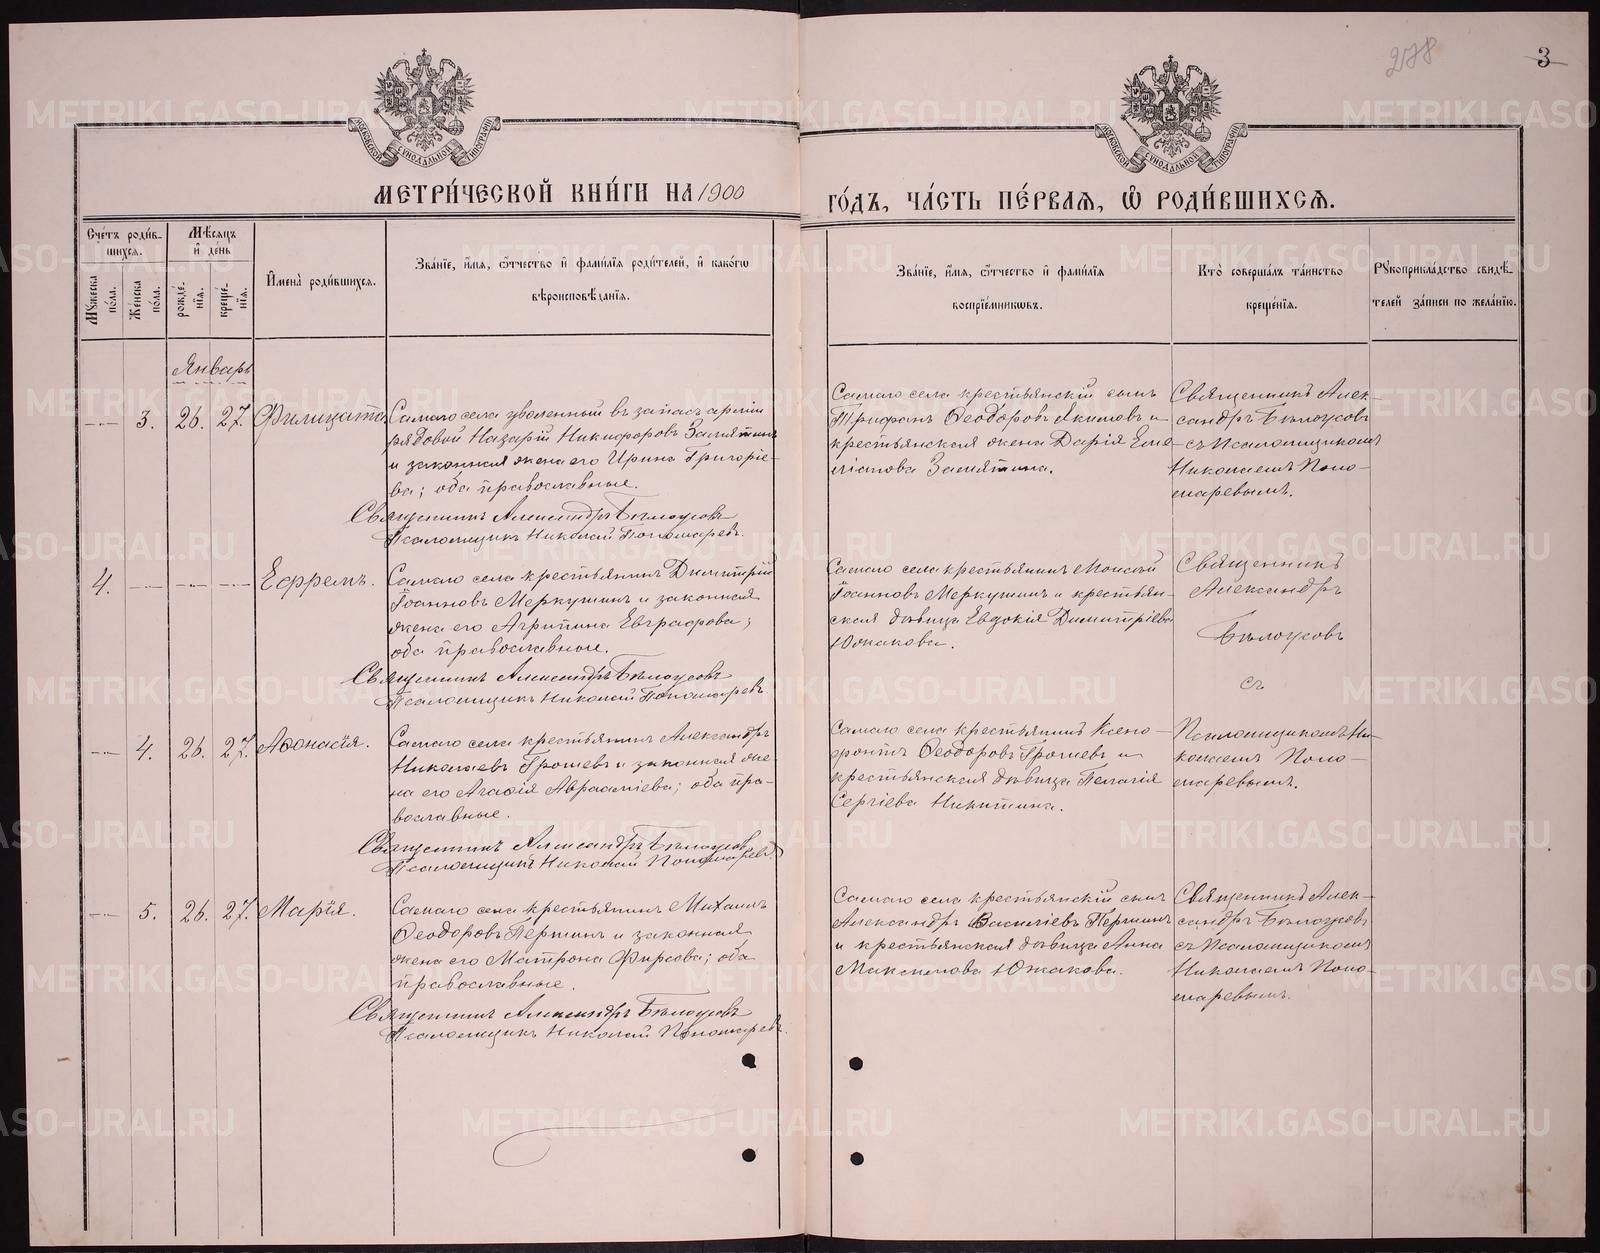 278
3
МОСКОВСКОЙ СѴНОДАЛЬНОЙ ТИПОГРАФІИ
МОСКОВСКОЙ СѴНОДАЛЬНОЙ ТИПОГРАФІИ
МЕТРИ́ЧЕСКОЙ КНИ́ГИ НА 1900
ГО́ДЪ, ЧА́СТЬ ПЕ́РВАЯ, Ѡ РОДИ́ВШИХСЯ.
Сче́тъ роди́в-
шихся.
Мѣ́сяцъ
и҆ де́нь
Мꙋ́жеска
по́ла.
Же́нска
по́ла.
рожде́-
нїя.
креще́-
нїя.
И҆мена̀ роди́вшихся.
Зва́нїе, и҆́мя, ѻ҆́тчество и҆ фами́лїя роди́телей, и҆ како́гѡ
вѣроисповѣ́данїя.
Зва́нїе, и҆́мя, ѻ҆́тчество и҆ фами́лїя
воспрїе́мникѡвъ.
Кто̀ соверша́лъ та́инство
креще́нїя.
Рꙋкоприкла́дство свидѣ́-
телей за́писи по жела́нїю.
Январь
3. 26. 27. Филицата
Самаго села уволенный въ запасъ арміи
рядовой Назарій Никифоровъ Замятинъ
и законная жена его Ирина Григоріе-
ва; оба православные.
Священникъ Александръ Бѣлоусовъ
Псаломщикъ Николай Пономаревъ.
Самаго села крестьянскій сынъ
Трифонъ Ѳеодоровъ Якимовъ и
крестьянская жена Дарія Еме
ліанова Замятина.
Священникъ Алек-
сандръ Бѣлоусовъ
съ Псаломщикомъ
Николаемъ Поно-
маревымъ.
4. Ефремъ.
Самаго села крестьянинъ Димитрій
Іоанновъ Меркушинъ и законная
жена его Агрипина Евграфова;
оба православные.
Священникъ Александръ Бѣлоусовъ
Псаломщикъ Николай Пономаревъ.
Самаго села крестьянинъ Моисей
Іоанновъ Меркушинъ и крестьян-
ская дѣвица Евдокія Димитріева
Южакова.
Священникъ
Александръ
Бѣлоусовъ
съ
4. 26. 27. Аѳонасія.
Самаго села крестьянинъ Александръ
Николаевъ Грошевъ и законная же-
на его Агаѳія Авраамiева; оба пра-
вославные.
Священникъ Александръ Бѣлоусовъ
Псаломщикъ Николай Пономаревъ
Самаго села крестьянинъ Ксено-
фонтъ Ѳеодоровъ Грошевъ и
крестьянская дѣвица Пелагія
Сергіева Никитина.
Псаломщикомъ Ни-
колаемъ Поно-
маревымъ.
5. 26. 27. Марія.
Самаго села крестьянинъ Михаилъ
Ѳеодоровъ Першинъ и законная
жена его Матрона Фирсова; оба
православные.
Священникъ Александръ Бѣлоусовъ
Псаломщикъ Николай Пономаревъ.
Самаго села крестьянскій сынъ
Александръ Василіевъ Першинъ
и крестьянская дѣвица Анна
Максимова Южакова.
Священникъ Алек-
сандръ Бѣлоусовъ
съ Псаломщикомъ
Николаемъ Поно-
маревымъ.
METRIKI.GASO-URAL.RU